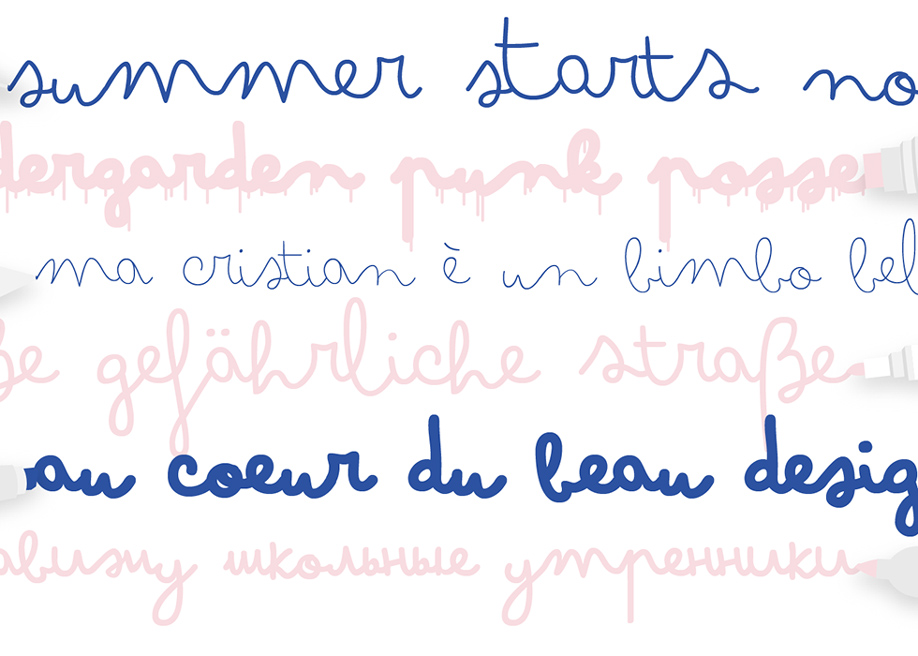 summer starts no
dergarden punk posse
ma cristian è un bimbo bel
ße gefährliche straße
au coeur du beau desig
школьные утренники